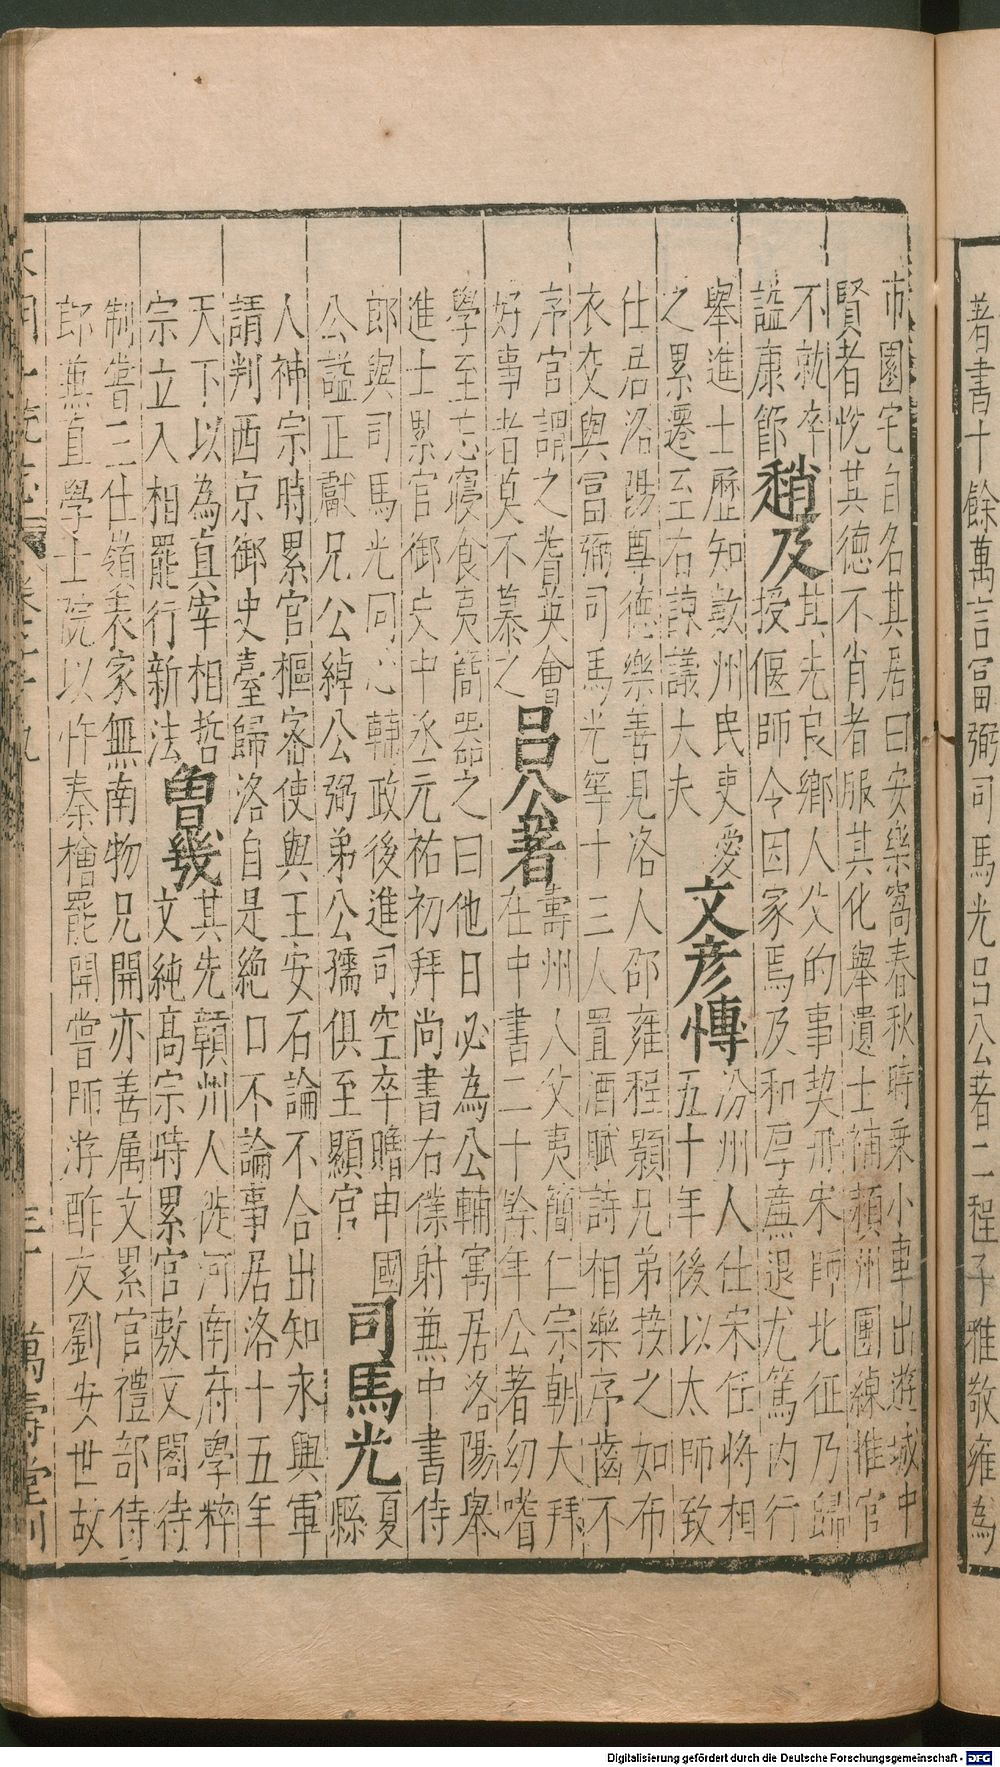 著書十餘萬言富弼司馬光呂公著二程子雅敬雍為
市園宅自名其居曰安樂窩春秋時乘小車出游城中
賢者悅其德不肖者服其化舉遺士補潁州團練推官
不就卒
諡康節
趙及
其先良鄉人父的事契丹宋師北征乃歸
授偃師令因家焉及和厚廉退尤篤内行
舉進士歷知歙州民吏愛
之累遷至右諫議大夫
文彥博
汾州人仕宋任將相
五十年後以太師致
仕居洛陽尊德樂善見洛人邵雍程顥兄弟接之如布
衣交與富弼司馬光等十三人置酒賦詩相樂序齒不
序官謂之耆英會
好事者莫不慕之
呂公著
壽州人父夷簡仁宗朝大拜
在中書二十餘年公著幼嗜
學至忘寢食夷簡器之曰他日必為公輔寓居洛陽舉
進士累官御史中丞元祐初拜尚書右僕射兼中書侍
郎與司馬光同心輔政後進司空卒贈申國
公諡正獻兄公綽公弼弟公孺俱至顯官
司馬光
夏
縣
人神宗時累官樞密使與王安石論不合出知永興軍
請判西京御史臺歸洛自是絕口不論事居洛十五年
天下以為真宰相哲
宗立入相罷行新法
曾幾
其先贛州人徙河南府學粹
文純高宗時累官敷文閣待
制嘗三仕嶺表家無南物兄開亦善属文累官禮部侍
郎兼直學士院以忤秦檜罷開嘗師游酢友劉安世故
大明一統志 卷二十九 三十 萬壽堂刊
Digitalisierung gefördert durch die Deutsche Forschungsgemeinschaft - DFG